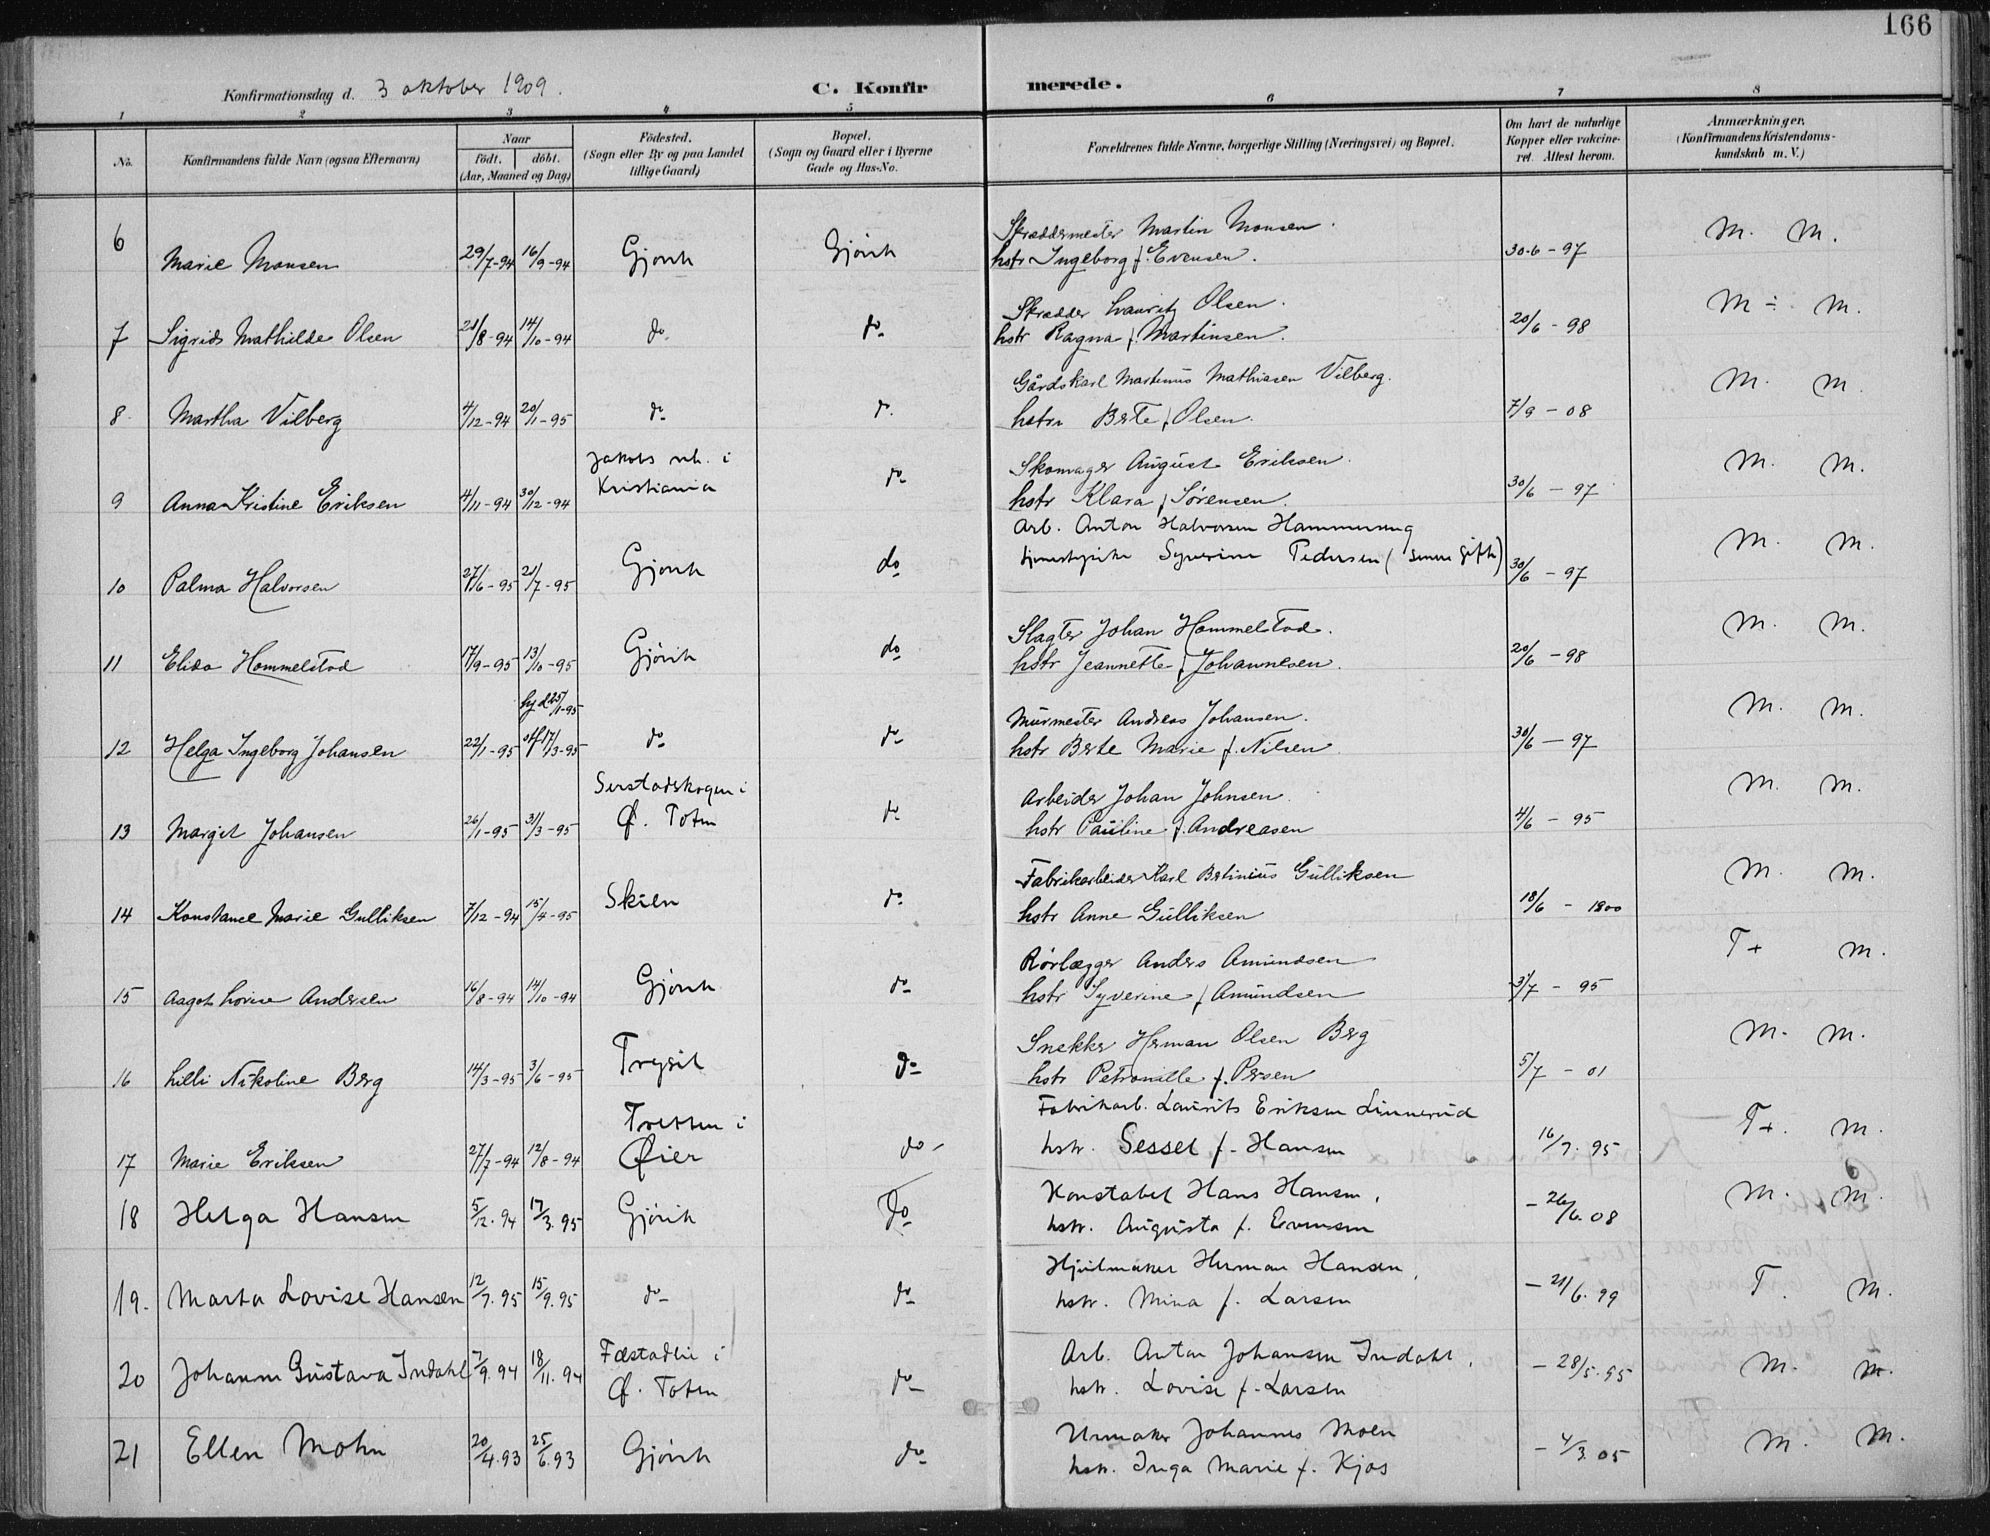 166
Konfirmationsdag d. 3 oktober 1909.
C. Konfirmerede.
1 2 3 4 5 6 7 8
No.
Konfirmandens fulde Navn (ogsaa Efternavn)
Naar
födt. döbt.
(Aar, Maaned og Dag)
Födested.
(Sogn eller By og paa Landet
tillige Gaard)
Bopæl.
(Sogn og Gaard eller i Byerne
Gade og Hus-No.
Forældrenes fulde Navne, borgerlige Stilling (Næringsvei) og Bopæl.
Om havt de naturlige
Kopper eller vakcine-
ret. Attest herom.
Anmærkninger.
(Konfirmandens Kristendoms-
kundskab m. V.)
6 Marie Monsen 29/7-94 16/9-94 Gjøvik Gjövik
Skræddermester Martin Monsen.
hstr Ingeborg f. Evensen. 30-6-97 M. M.
7 Sigrids Mathilde Olsen 21/8-94 14/10-94 do. do
Skrædder Lauritz Olsen.
hstr Ragna f. Martinsen. 20/6-98 M ÷ M.
8. Martha Vilberg 4/12-94 20/1-95 do d.
Gårdskarl Martinus Mathiasen Vilberg.
hstru Berte f. Olsen. 7/9-08 M. M.
9 Anna Kristine Eriksen 4/11-94 30/12-94
Jakobs mh. i
Kristiania do
Skomager August Eriksen.
hstr Klara f. Sørensen. 30/6-97 M. M.
10 Palma Halvorsen 27/6-95 21/7-95 Gjøvik do
Arb. Anton Halvorsen Hammereng
tjenestepike Syverine Pedersen (senere gift) 30/6-97 M. M.
11 Elida Hammelstad 17/9-95 13/10-95 Gjövik do
Slagter Johan Hammelstad.
hstr Jeannette f. Johannesen. 20/6-98 M. M.
hjd 25/1-95
12 Helga Ingeborg Johansen 22/1-95 off 17/3-95 do do
Murmester Andreas Johansen.
hstr Berte Marie f. Nilsen 30/6-97 M. M.
13 Margit Johansen 26/1-95 31/3-95
Serstadskogen i
Ø. Toten do
Arbeider Johan Johnsen.
hstr Pauline f. Andreasen 4/6-95 M. M.
14 Konstance Marie Gulliksen 7/12-94 15/4-95 Skien do
Fabrikarbeider Karl Betinius Gulliksen
hstr Anne Gulliksen 18/6-1800 M. M.
15 Aagot Lovise Andersen 16/8-94 14/10-94 Gjövik do
Rörlægger Anders Amundsen
hstr Syverine f Amundsen 3/7-95 T+ M.
16 Lilli Nikoline Berg 14/3-95 3/6-95 Trysil do
Snekker Herman Olsen Berg
hstr Petronille f. Persen 5/7-01 M. M.
17 Marie Eriksen 27/7-94 12/8-94
Tretten i
Øier do-
Fabrikarb. Laurits Eriksen Linnerud
hstr. Sessel f. Hansen 16/7.95 T+. M.
18 Helga Hansen 5/12.94 17/3.95 Gjövik do
Konstabel Hans Hansen,
hstr. Augusta f. Evensen -26/6.08 M. M.
19. Marta Lovise Hansen 12/7.95 15/9.95 do do
Hjulmaker Herman Hansen,
hstr. Mina f. Larsen -21/6.99 T. M.
20 Johanne Gustava Indahl 7/9.94 18/11.94
Fæstadlie i
Ø. Toten do
Arb. Anton Johansen Indahl,
hstr. Lovise f. Larsen -28/5.95 M. M.
21 Ellen Mohn 20/4.93 25/6.93 Gjövik do
Urmaker Johannes Moen
hstr. Inga Marie f. Kjos -4/3.05 M. M.